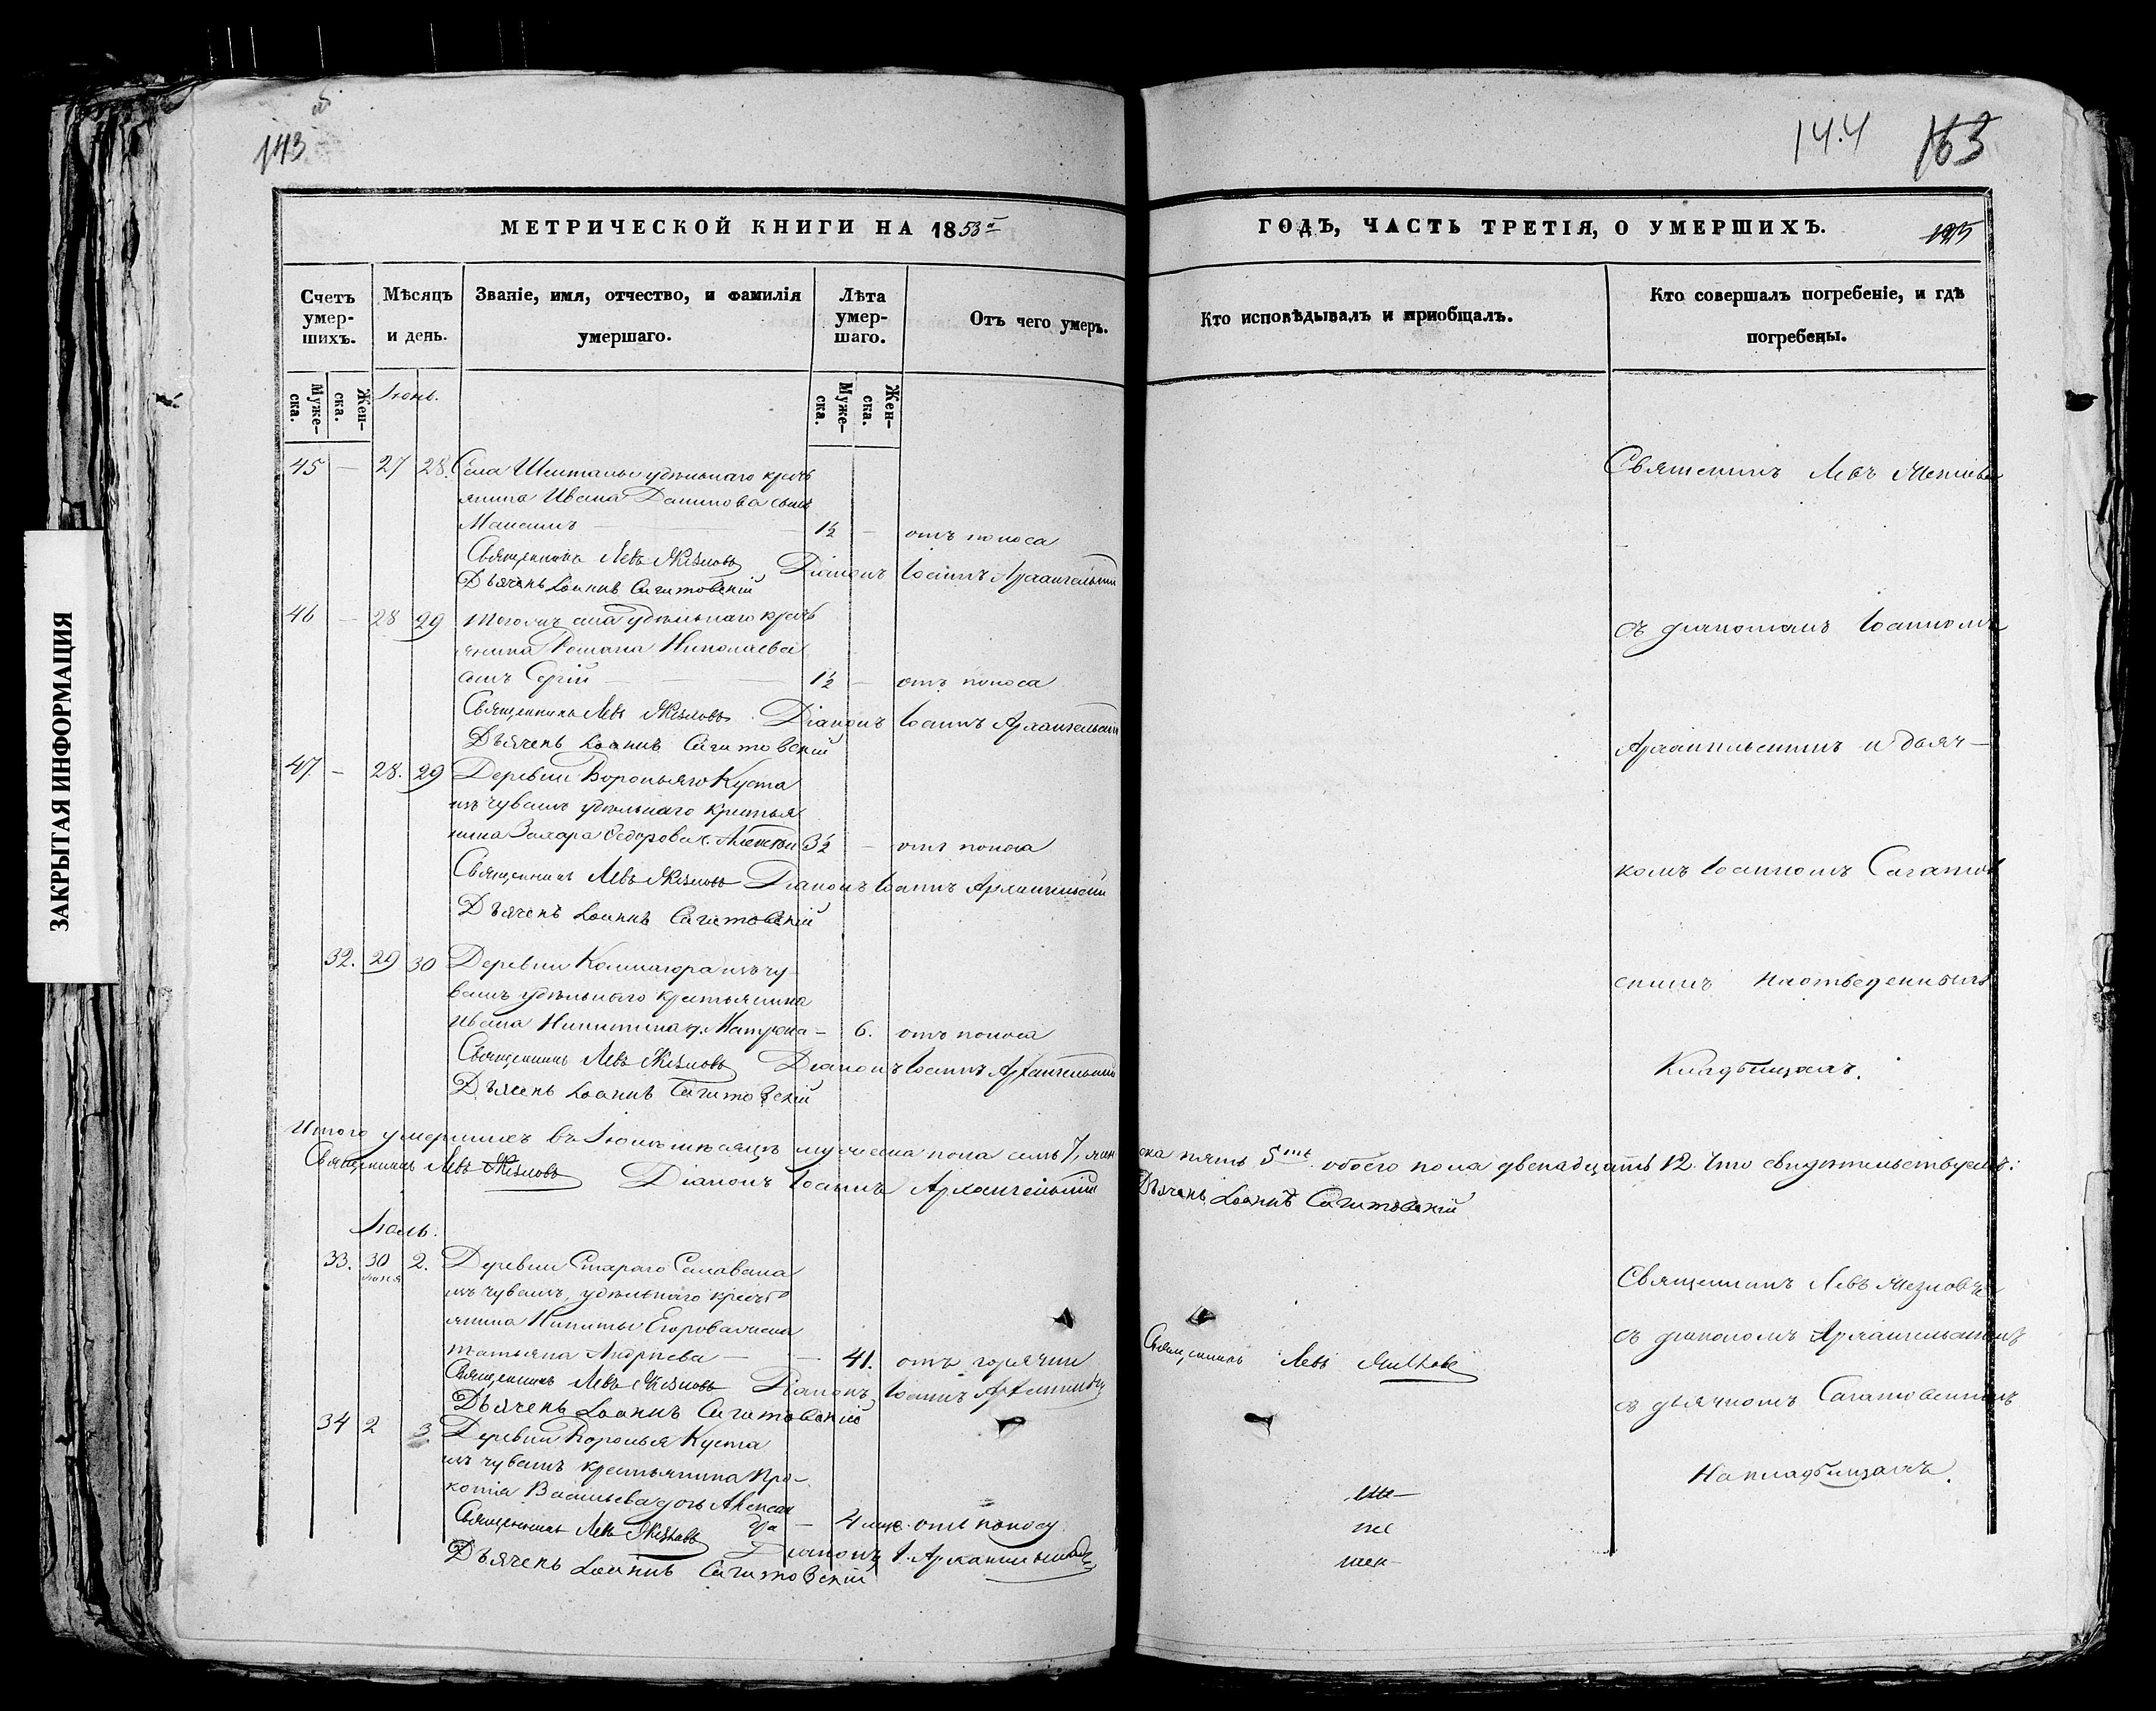 143
14.4 163
МЕТРИЧЕСКОЙ КНИГИ НА 1853й
ГОДЪ, ЧАСТЬ ТРЕТІЯ, О УМЕРШИХЪ.
Счетъ умер-шихъ.
Мѣсяцъ и день.
Званіе, имя, отчество, и фамилія умершаго.
Лѣта умер-шаго.
Отъ чего умеръ.
Кто исповѣдывалъ и пріобщалъ.
Кто совершалъ погребеніе, и гдѣ погребены.
Муже-ска.
Жен-ска.
Муже-ска.
Жен-ска.
Іюнь.
45 — 27 28. Села удѣльнаго кресть
янина Ивана Данилова сынъ
Максимъ — 1½ — отъ поноса
Священникъ Левъ Діаконъ Іоаннъ Архангельскій
Дьячекъ Іоаннъ Сагитовскій
46 — 28 29 того же села удѣльнаго кресть
янина Романа Николаева
сынъ Сергій — 1½ — отъ поноса
Священникъ Левъ Діаконъ Іоаннъ Архангельскій
Дьячекъ Іоаннъ Сагитовскій
47. — 28. 29 Деревни Вороньяго Куста
изъ чувашъ удѣльнаго крестья
нина Захара Ѳедорова с. Алексѣй 3½ — отъ поноса
Священникъ Левъ Діаконъ Іоаннъ Архангельскій
Дьячекъ Іоаннъ Сагитовскій
32. 29 30 Деревни изъ чу
вашъ удѣльнаго крестьянина
Ивана Никитина д. Матрона — 6. отъ поноса
Священникъ Левъ Діаконъ Іоаннъ Архангельскій
Дьячекъ Іоаннъ Сагитовскій
Священникъ Левъ
съ діакономъ Іоанномъ
Архангельскимъ и дьяч—
комъ Іоанномъ
скимъ на отведенныхъ
Кладбищахъ.
Итого умершихъ въ Іюнѣ мѣсяцѣ мужеска пола семь 7, жен ска пять 5ть обоего пола двенадцать 12. Что свидѣтельствуемъ:
Священникъ Левъ Діаконъ Іоаннъ Архангельскій Дьячекъ Іоаннъ Сагитовскій
Іюль.
33. 30 іюня 2. Деревни Стараго
изъ чувашъ, удѣльнаго кресть
янина Никиты Егорова жена
татьяна Андрѣева — 41. отъ горячки
Священникъ Левъ
Священникъ Левъ Діаконъ Іоаннъ
Дьячекъ Іоаннъ Сагитовскій
34 2 3. Деревни Воронья Куста
изъ чувашъ крестьянина Про-
копія Васильева дочь Алексан
дра — 4 отъ поносу
Священникъ Левъ Діаконъ І. Архангельскій
Дьячекъ Іоаннъ Сагитовскій
Священникъ Левъ
съ діакономъ Архангельскимъ
съ дьячкомъ
На кладбищахъ.
ЗАКРЫТАЯ ИНФОРМАЦИЯ